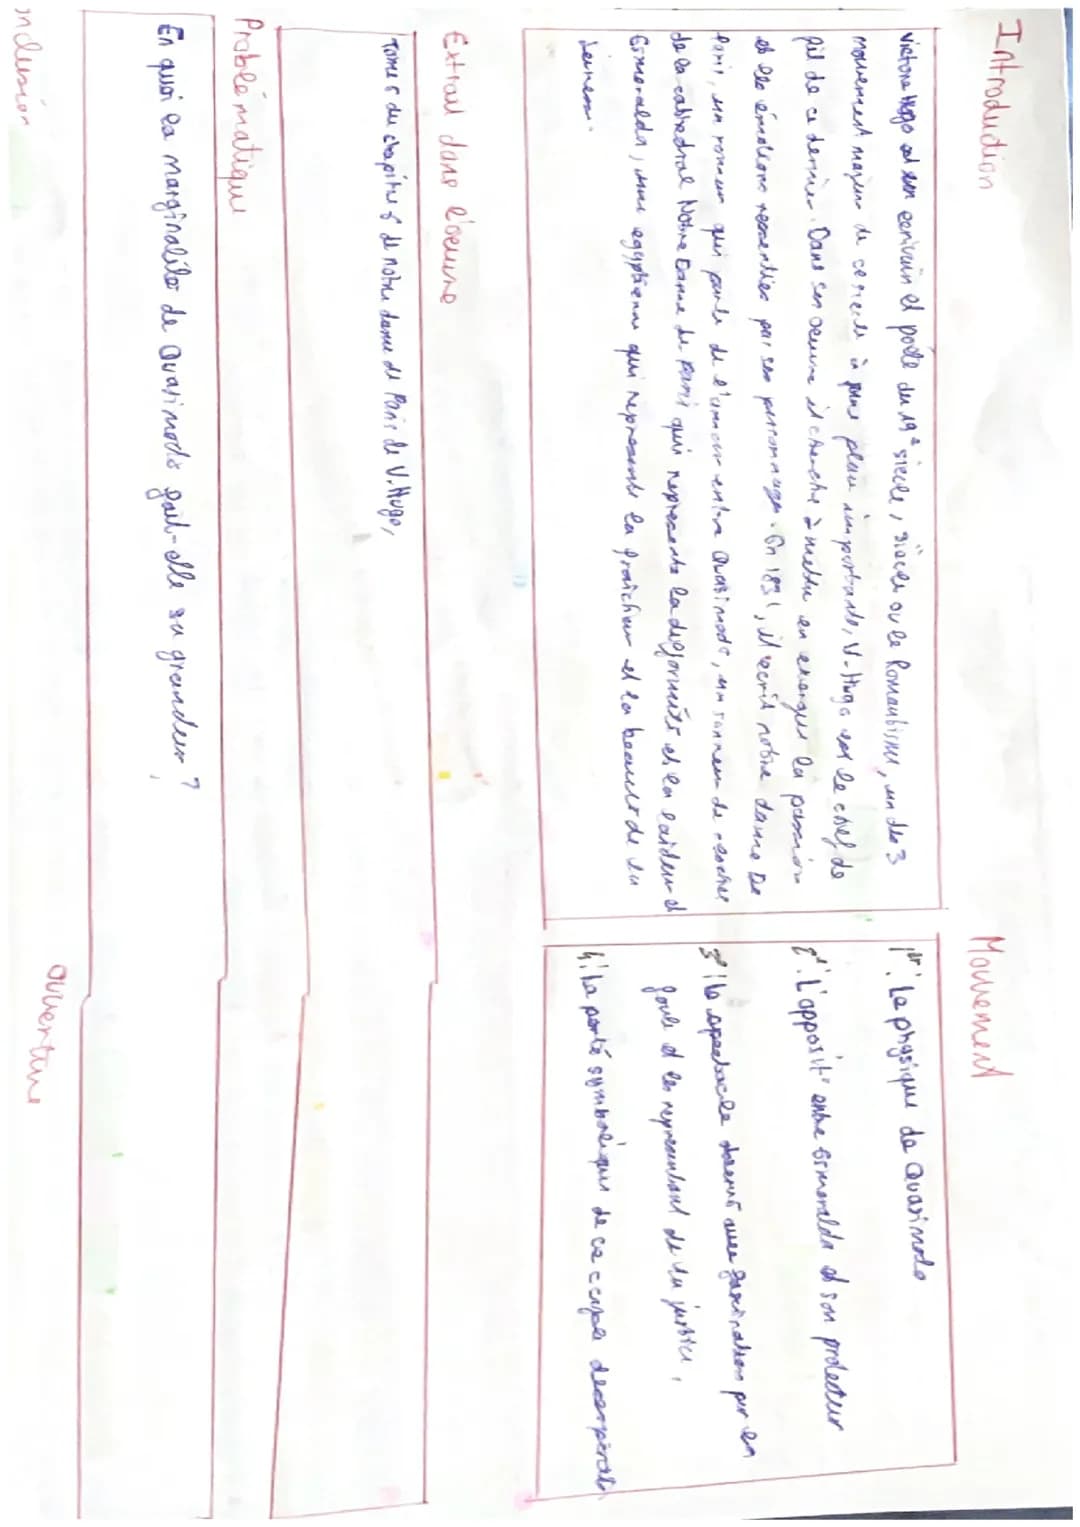 Introduction
Victore Hugo est un ecrivain et poète du 19e siecle, siècle ou le Romantisme, un des 3
mouvement majeur de ce siecle à pris plus importants, V-Hugo est le chef de
fil de ce dernier. Dans ses oeuvre il cherche à mettre en exergue la passion
et les émotions ressenties par ses personnages. En 1831, il ecrit notre dame De
Paris, un roman qui parle de l'amour entre Quasimodo, un sonneur de cloches
de la cathedral Notre Dame de Paris qui represente la difformité et la laideur et
Esmeralda, une egyptienne qui represente la fraicheur et la beauté de la
Jeunesse.
Mouvement
1er: Le physique de Quasimodo
2e: L'opposit° entre Esmeralda et son protecteur
3e: le spectacle observé avec fascination par la
foule et les representant de la justice,
4: La porté symbolique de ce couple
Extrait dans l'oeuvre
Tome 6 du chapitre 6 de notre dame de Paris de V.Hugo,
Problématique
En quoi la marginalité de Quasimodo fait-elle sa grandeur ?
onclusion
ouverture